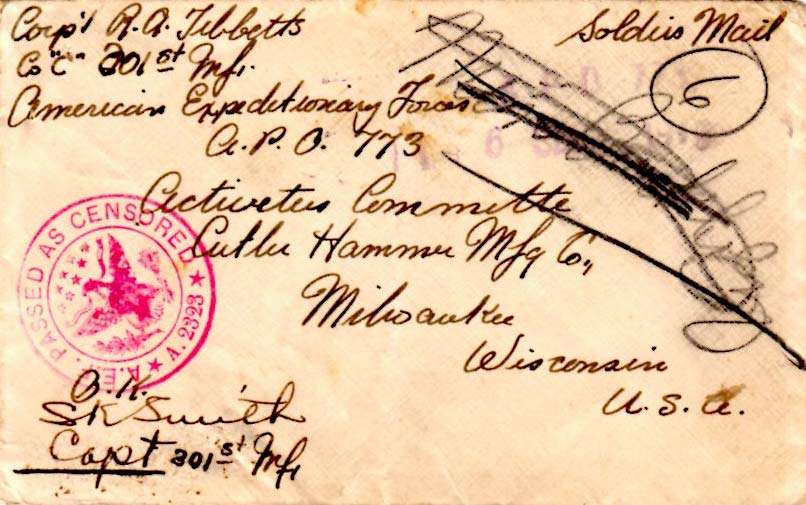 Corp'l R.A. Tibbetts
Co "C" 301st Mfr.
American Expeditionary Forces
A.P.O. 773
Soldiers Mail
6
Activeties Committe
Cutler Hammer Mfg Co.,
Milwaukee
Wisconsin
U.S.A.
PASSED AS CENSORED
A.E.F.
A. 2323
O.K.
S K Smith
Capt 301st Mfr